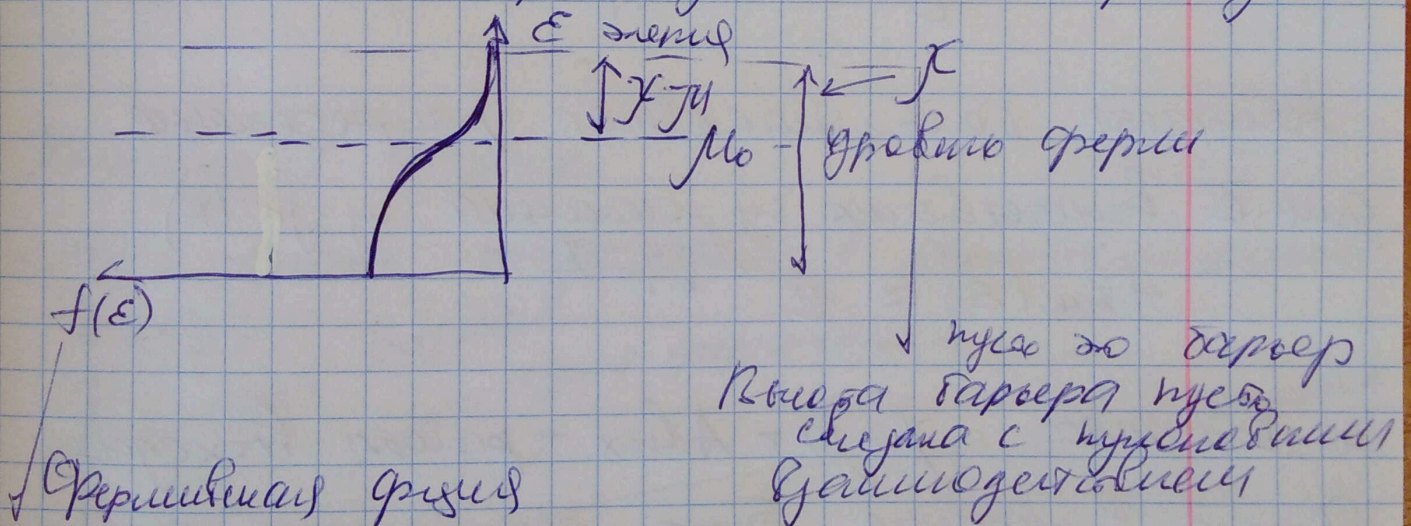 ε энергия
χ
χ-μ
μ₀ - уровень ферми
f(ε)
пусть это барьер
Высота барьера пусть
связана с кулоновским
взаимодействием
Фермиевская фция